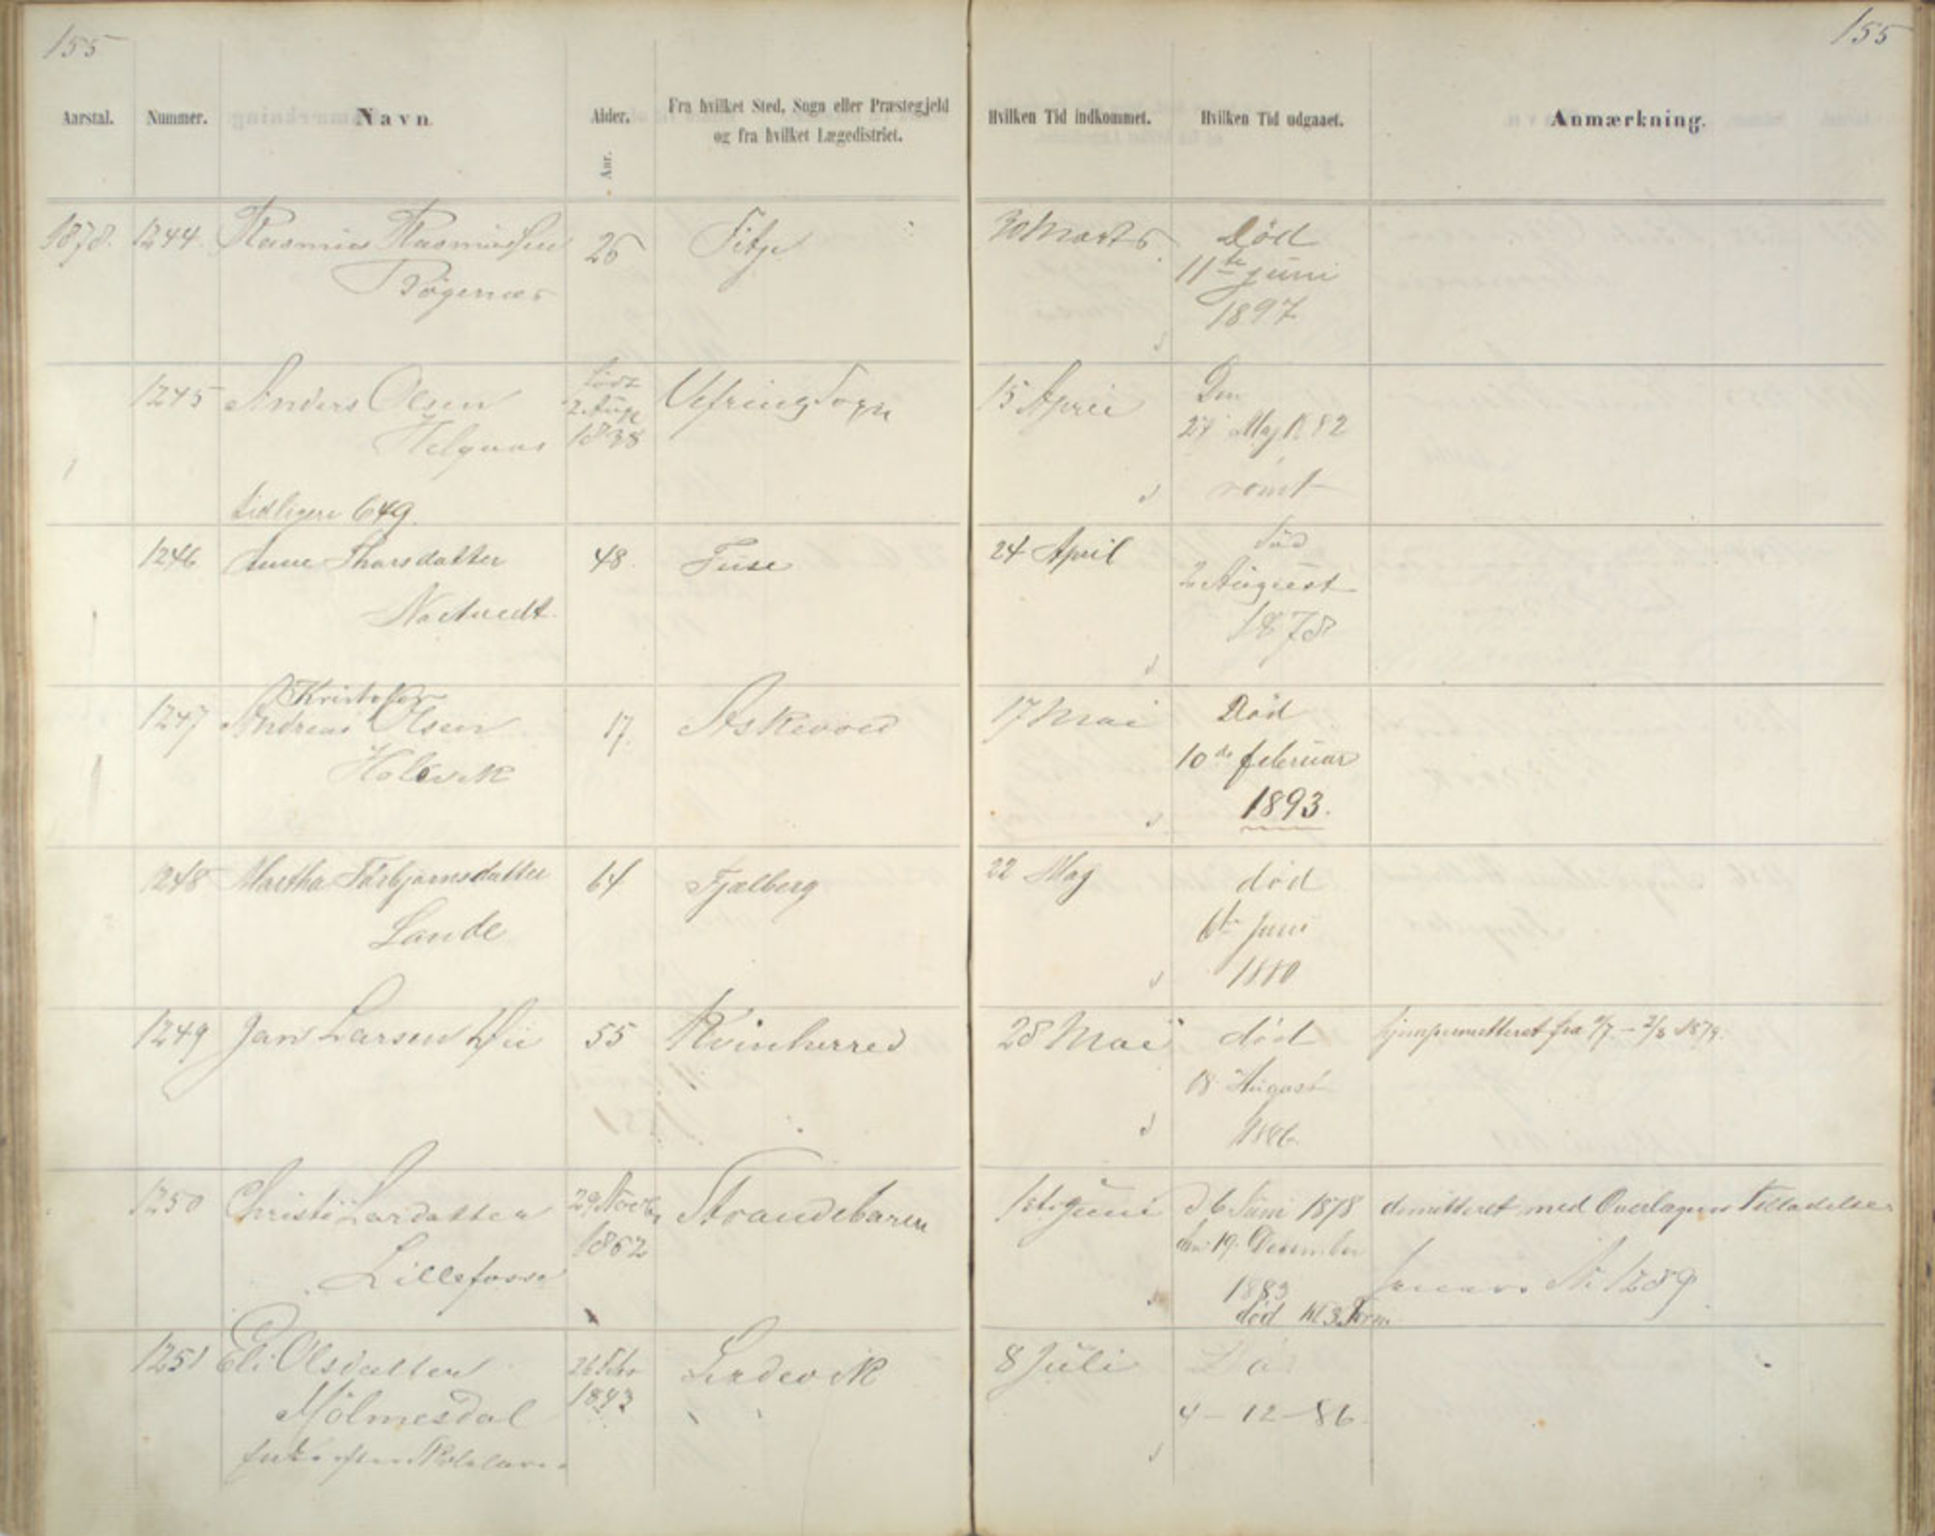 155
155
Aarstal.
Nummer.
Navn
Alder.
Aar.
Fra hvilket Sted, Sogn eller Præstegjeld
og fra hvilket Lægedistrict.
Hvilken Tid indkommet.
Hvilken Tid udgaaet.
Anmærkning.
1878. 1244. Rasmus Rasmussen 26 Fitje 30 Marts Død
11te juni
1897
1245 Anders Olsen født Vefring Sogn 15 April Den
2 Aug 27 Maj 1882
1838
rømt
tidligere 649.
1246 Anne Thorsdatter 48. Fuse 24 April død
2 August
1878
Kristofer
1247 Andreas Olsen 17 Askevold 17 Mai Død
10de februar
1893.
1248 Martha Torbjørnsdatter 64 Fjælberg 22 Maj død
Lande 6te Juni
1880
1249 Jan Larsen 55 Kvinherred 28 Mai død
18 August
1886.
1250 Christi Larsdatter 29 Novbr Strandebarm 1ste Juni d 6 Juni 1878 demitteret med Overlægens Tilladelse
1862 den 19. December
Lillefosse
1883 No 1289
død Kl 3 Form
1251 Eli Olsdatter 26 Febr 8 Juli
1843
Mølmesdal 4-12-86.